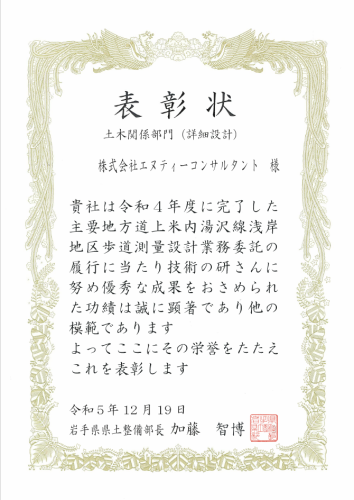 表彰状
土木関係部門（詳細設計）
株式会社エヌティーコンサルタント 様
貴社は令和４年度に完了した
主要地方道上米内湯沢線浅岸
地区歩道測量設計業務委託の
履行に当たり技術の研さんに
努め優秀な成果をおさめられ
た功績は誠に顕著であり他の
模範であります
よってここにその栄誉をたたえ
これを表彰します
令和５年１２月１９日
岩手県県土整備部長 加藤 智博